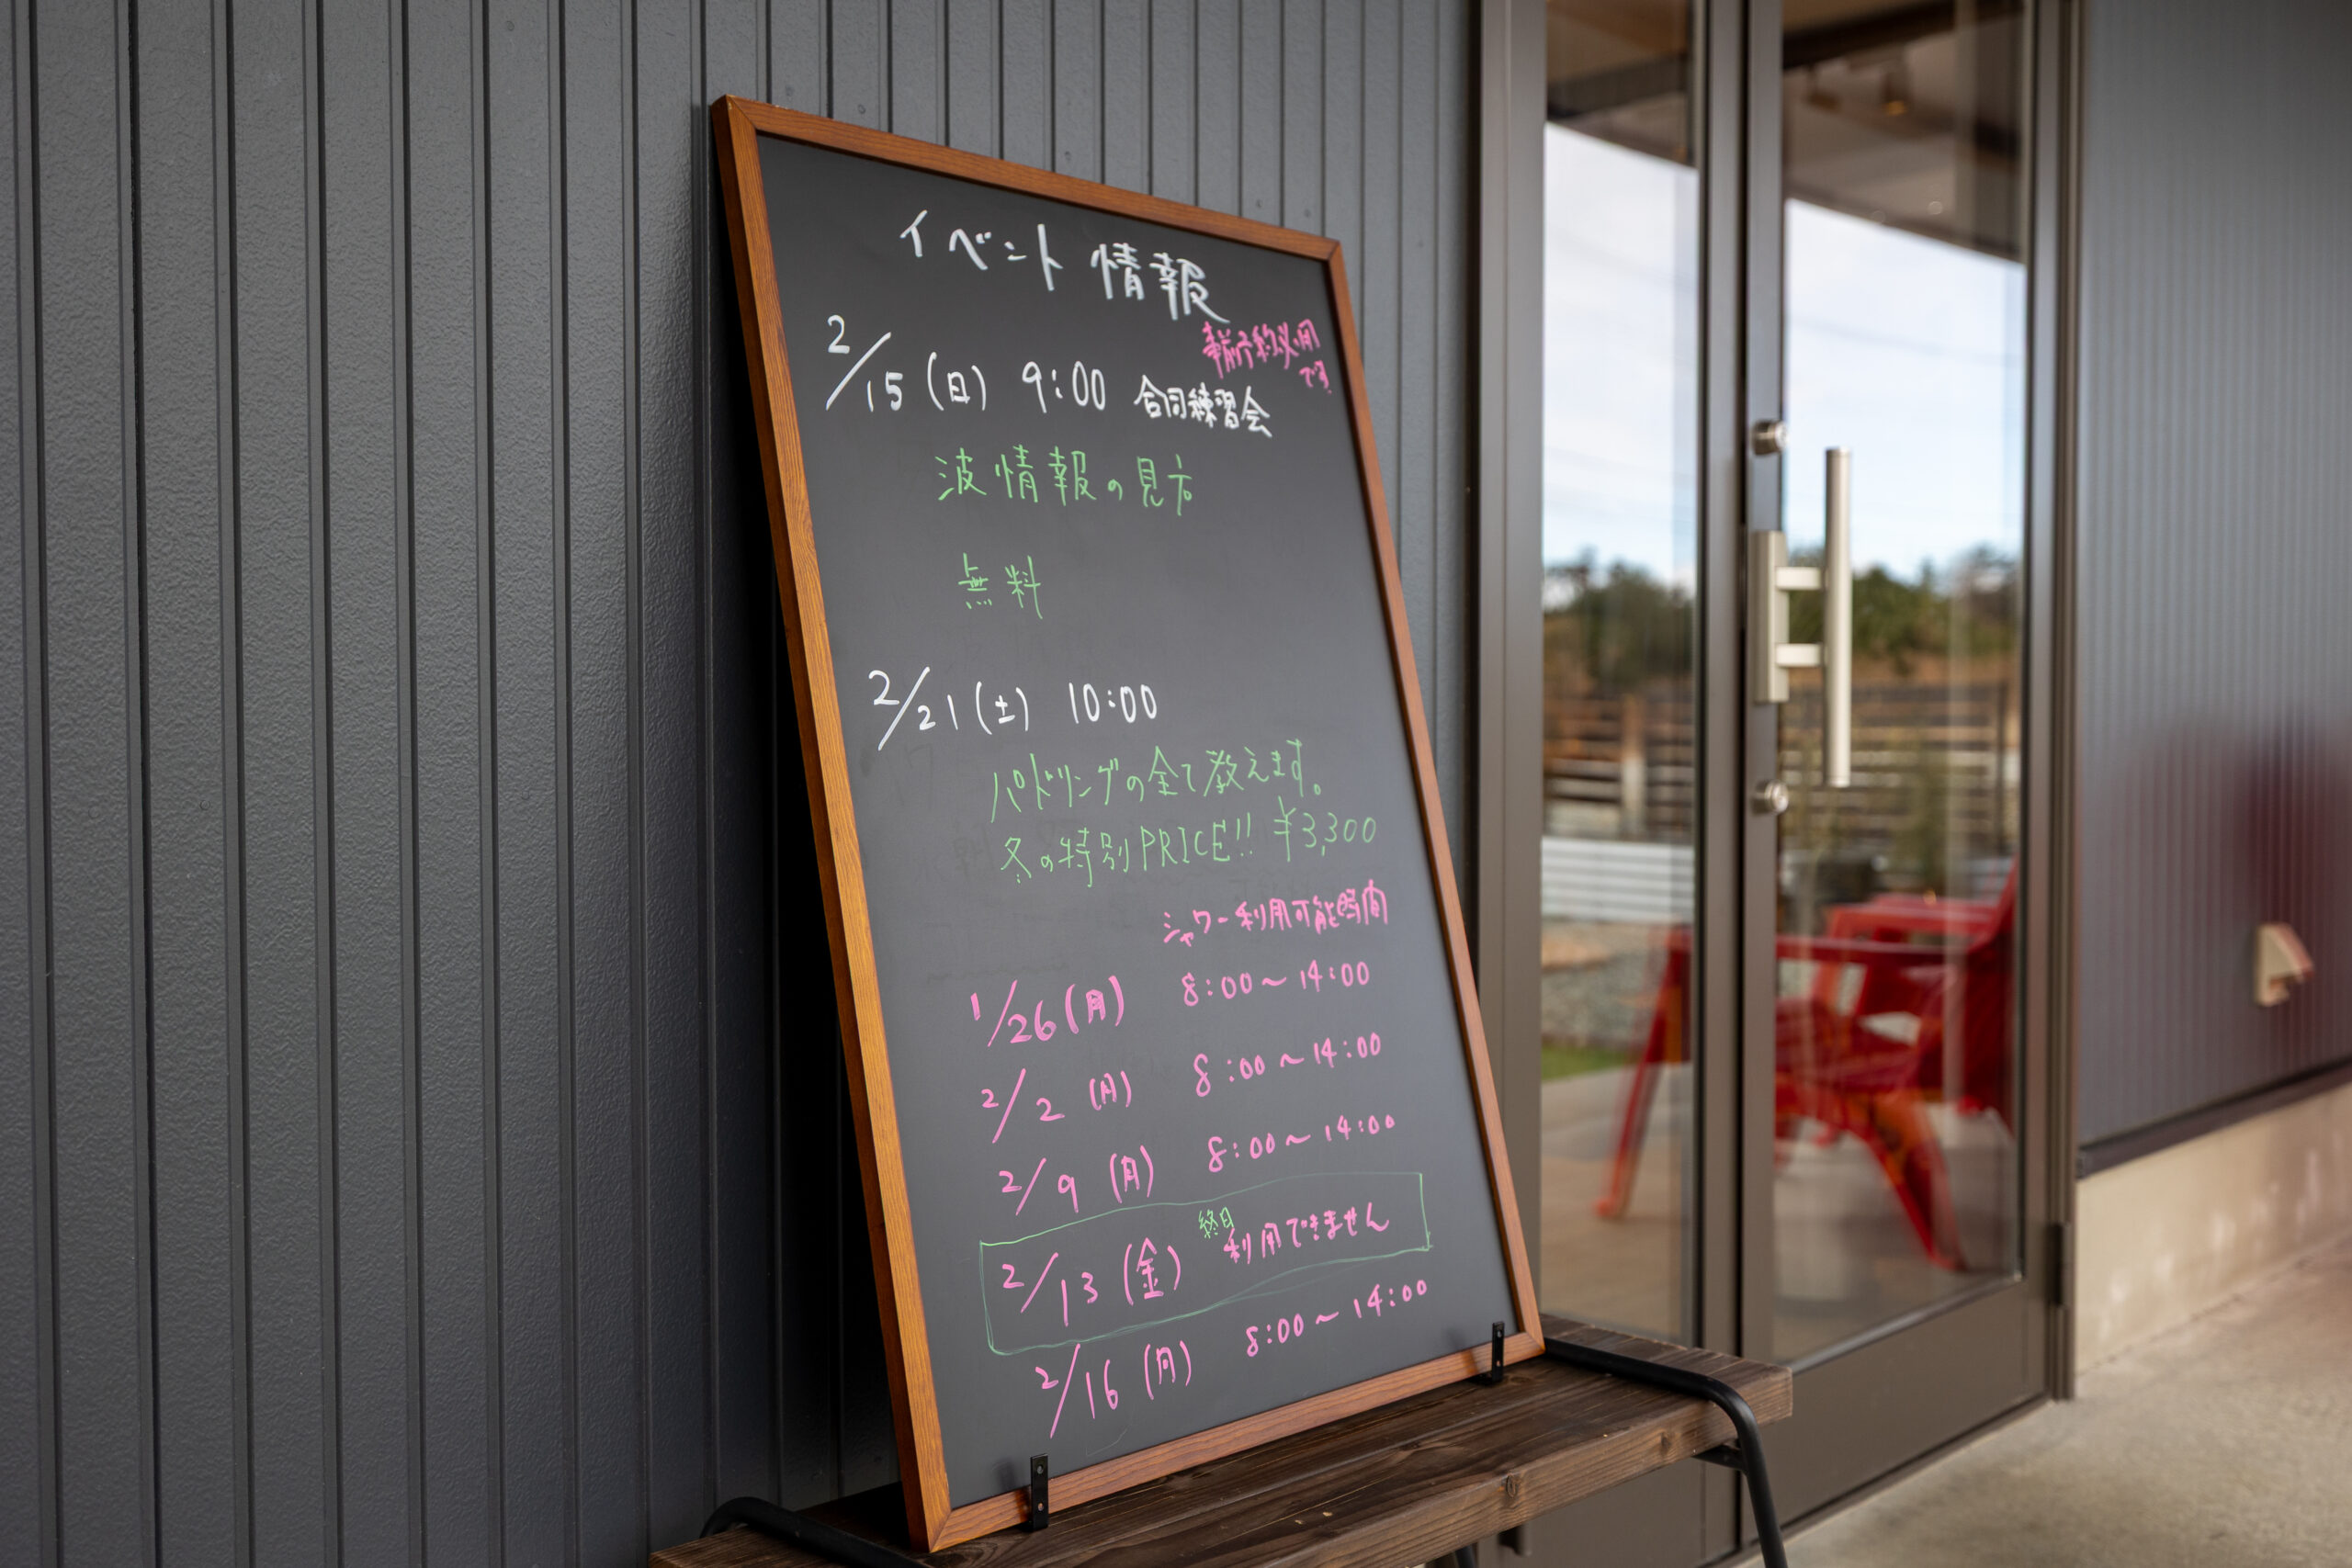 イベント情報
事前予約必要
です
2/15(日) 9:00 合同練習会
波情報の見方
無料
2/21(土) 10:00
パドリングの全て教えます。
冬の特別PRICE!! ¥3,300
シャワー利用可能時間
1/26(月) 8:00〜14:00
2/2(月) 8:00〜14:00
2/9(月) 8:00〜14:00
2/13(金) 終日利用できません
2/16(月) 8:00〜14:00